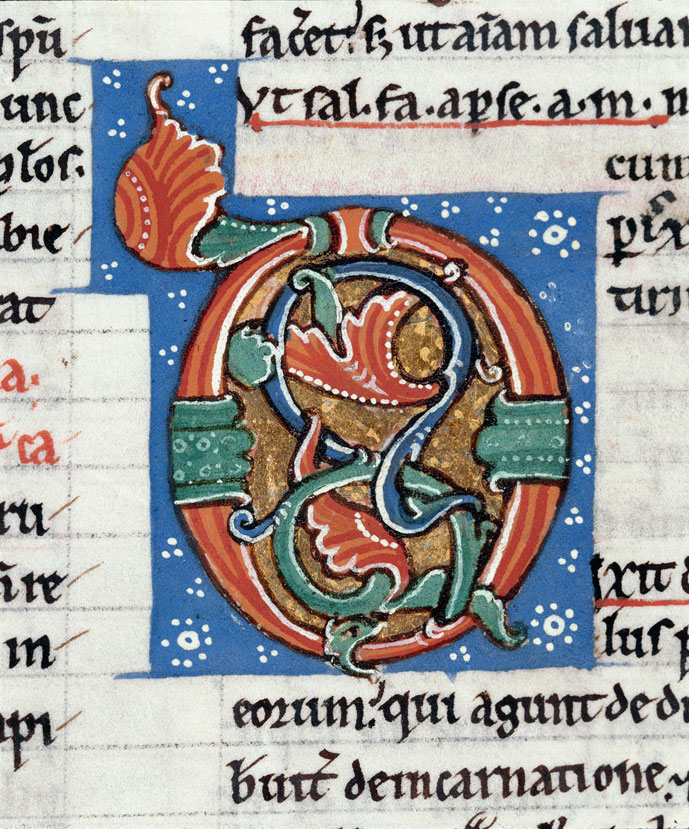 spū
unc
bie
rat
a.
ca
ru
n̄re
in
api
facet̄. s; ut aīam saluar
yt sal. fa. apse. a. m. n
cum
turi
D
ixit d
lus p
eorum. qui agunt de di
buit̄ de incarnatione.